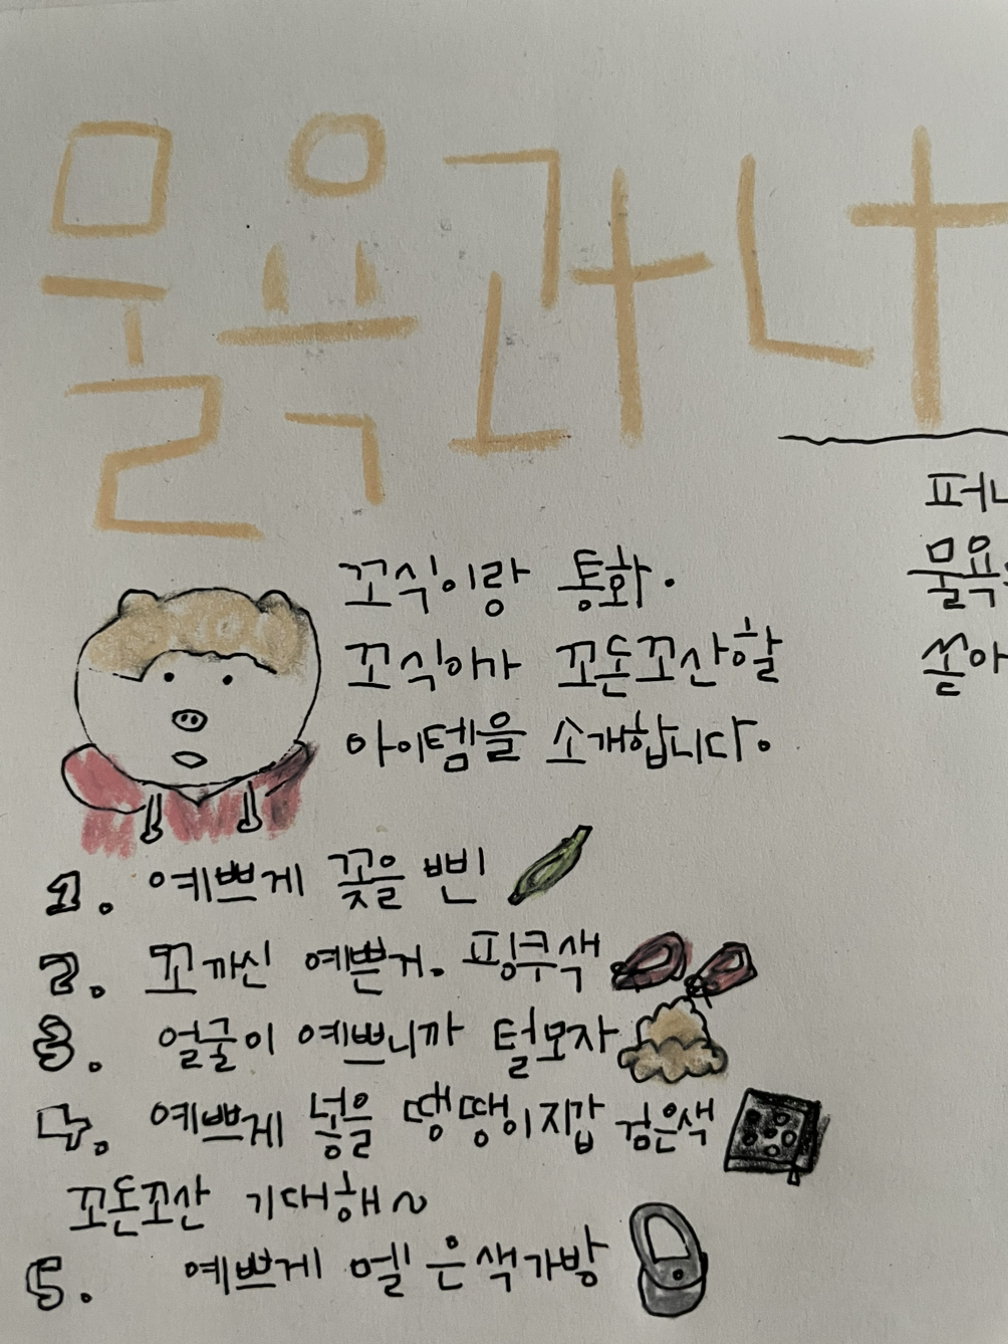 물욕과 나
퍼
물욕
쏠아
꼬식이랑 통화.
꼬식이가 꼬돈꼬산할
아이템을 소개합니다.
1. 예쁘게 꽂을 삔
2. 꼬까신 예쁜거. 핑쿠색
3. 얼굴이 예쁘니까 털모자
4. 예쁘게 넣을 땡땡이지갑 검은색
꼬돈꼬산 기대해~
5. 예쁘게 멜 은색가방